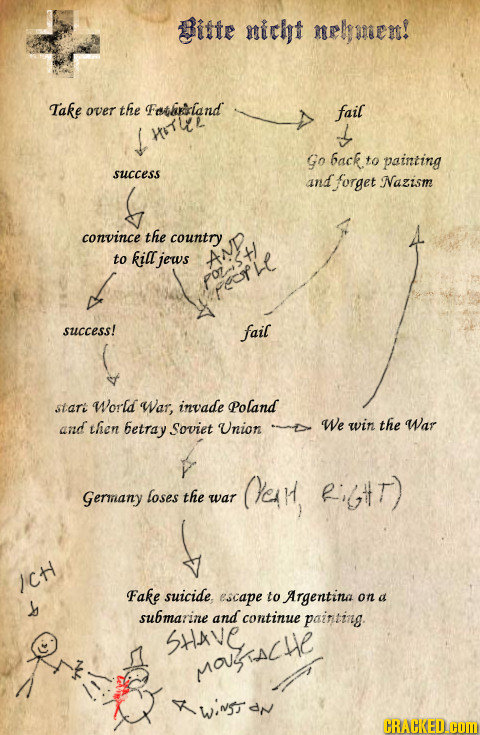 Bitte nicht nehmen!
Take over the Fatherland
fail
success
Go back to painting
and forget Nazism
convince the country
to kill jews
AND
POLISH
PEOPLE
success!
fail
start World War, invade Poland
and then betray Soviet Union
We win the War
Germany loses the war
(YEAH, RIGHT)
ICH
Fake suicide, escape to Argentina on a
submarine and continue painting.
SHAVE
MOUSTACHE
WINSTON
CRACKED.COM